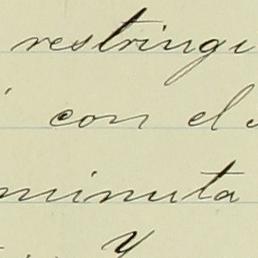 restringi
con el
minuta
y